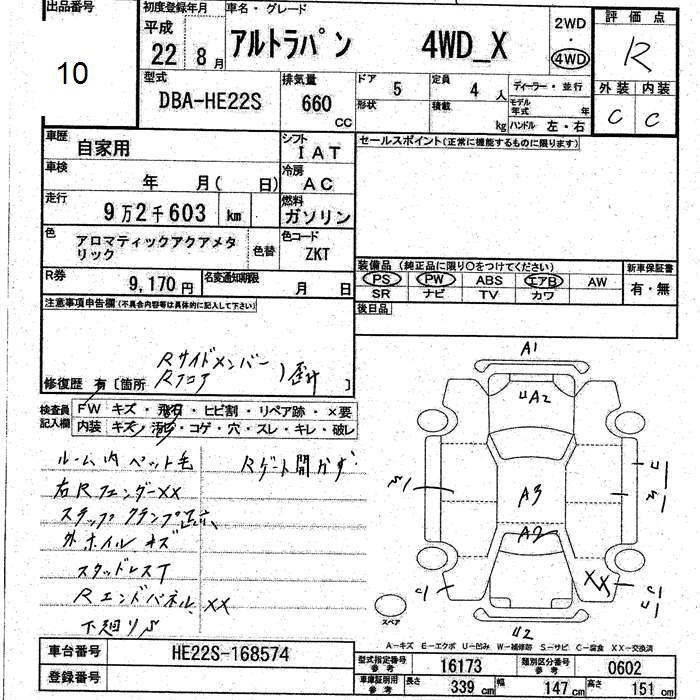 出品番号
10
初度登録年月
平成
22 8月
車名・グレード
アルトラパン 4WD_X
2WD
4WD
評価点
R
外装 内装
C C
型式
DBA-HE22S
排気量
660
CC
ドア 5
形状
定員 4 人
積載 kg
ディーラー・並行
モデル年式 年
ハンドル 左・右
車歴
自家用
シフト
IAT
セールスポイント(正常に機能するものに限ります)
車検
年 月( 日)
冷房
AC
走行
9万2千603 km
燃料
ガソリン
色
アロマティックアクアメタ
リック
色替
色コード
ZKT
R券
9,170円
名変通知期限
月 日
装備品 (純正品に限り○をつけてください)
PS PW ABS エアB AW
SR ナビ TV カワ
新車保証書
有・無
後日品
注意事項申告欄(不具合内容等は具体的に記入して下さい)
Rサイドメンバー
修復歴 有〔箇所 Rフロア 〕
検査員
記入欄
FW キズ・飛石・ヒビ割・リペア跡・×要
内装 キズ・汚れ・コゲ・穴・スレ・キレ・破レ
ルーム内ペット毛
Rゲート開かず
右RフェンダーXX
ステップクランプ
外ホイルキズ
スタッドレスT
RエンドパネルXX
下廻りS
A1
UA2
S1
A3
U1
S1
A2
XX
C1
C1
U1
U2
スペア
A-キズ E-エクボ U-凹み W-補修跡 S-サビ C-腐食 XX-交換済
車台番号
HE22S-168574
登録番号
型式指定番号 参考
16173
類別区分番号 参考
0602
車庫証明用 参考
長さ 339 cm
幅 147 cm
高さ 151 cm